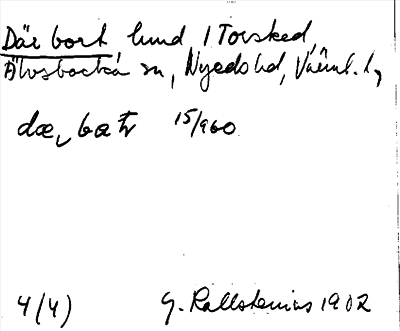 Där bort, lund i Torsked,
Älvsbacka sn, Nyeds hd, Värml. l.,
dæ, bæt̄r 15/960
4/(4) G. Kallstenius 1902